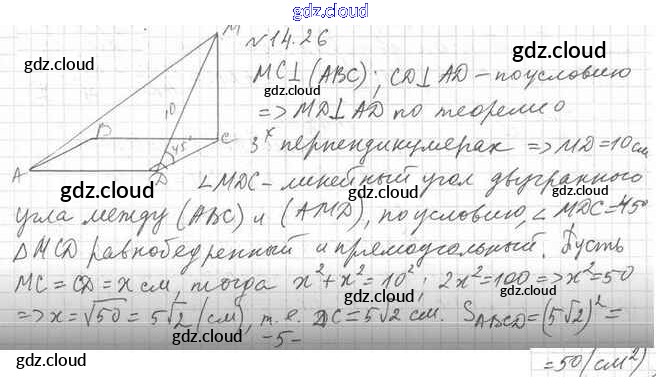 gdz.cloud
M
№14.26
gdz.cloud
gdz.cloud
gdz.cloud
MC⊥(ABC); CD⊥AD – по условию
10
=> MD⊥AD по теореме о
B
45°
C
3х перпендикулярах => MD=10 см
A
D
gdz.cloud
gdz.cloud
∠MDC – линейный угол двугранного
угла между (ABC) и (AMD), по условию, ∠MDC=45°
gdz.cloud
gdz.cloud
△MCD равнобедренный и прямоугольный. Пусть
MC=CD=x см, тогда x²+x²=10²; 2x²=100=>x²=50
=> x=√50=5√2 (см), т.е. DC=5√2 см. SABCD=(5√2)²=
gdz.cloud
gdz.cloud
-5-
gdz.cloud
=50(см²)
gdz.cloud